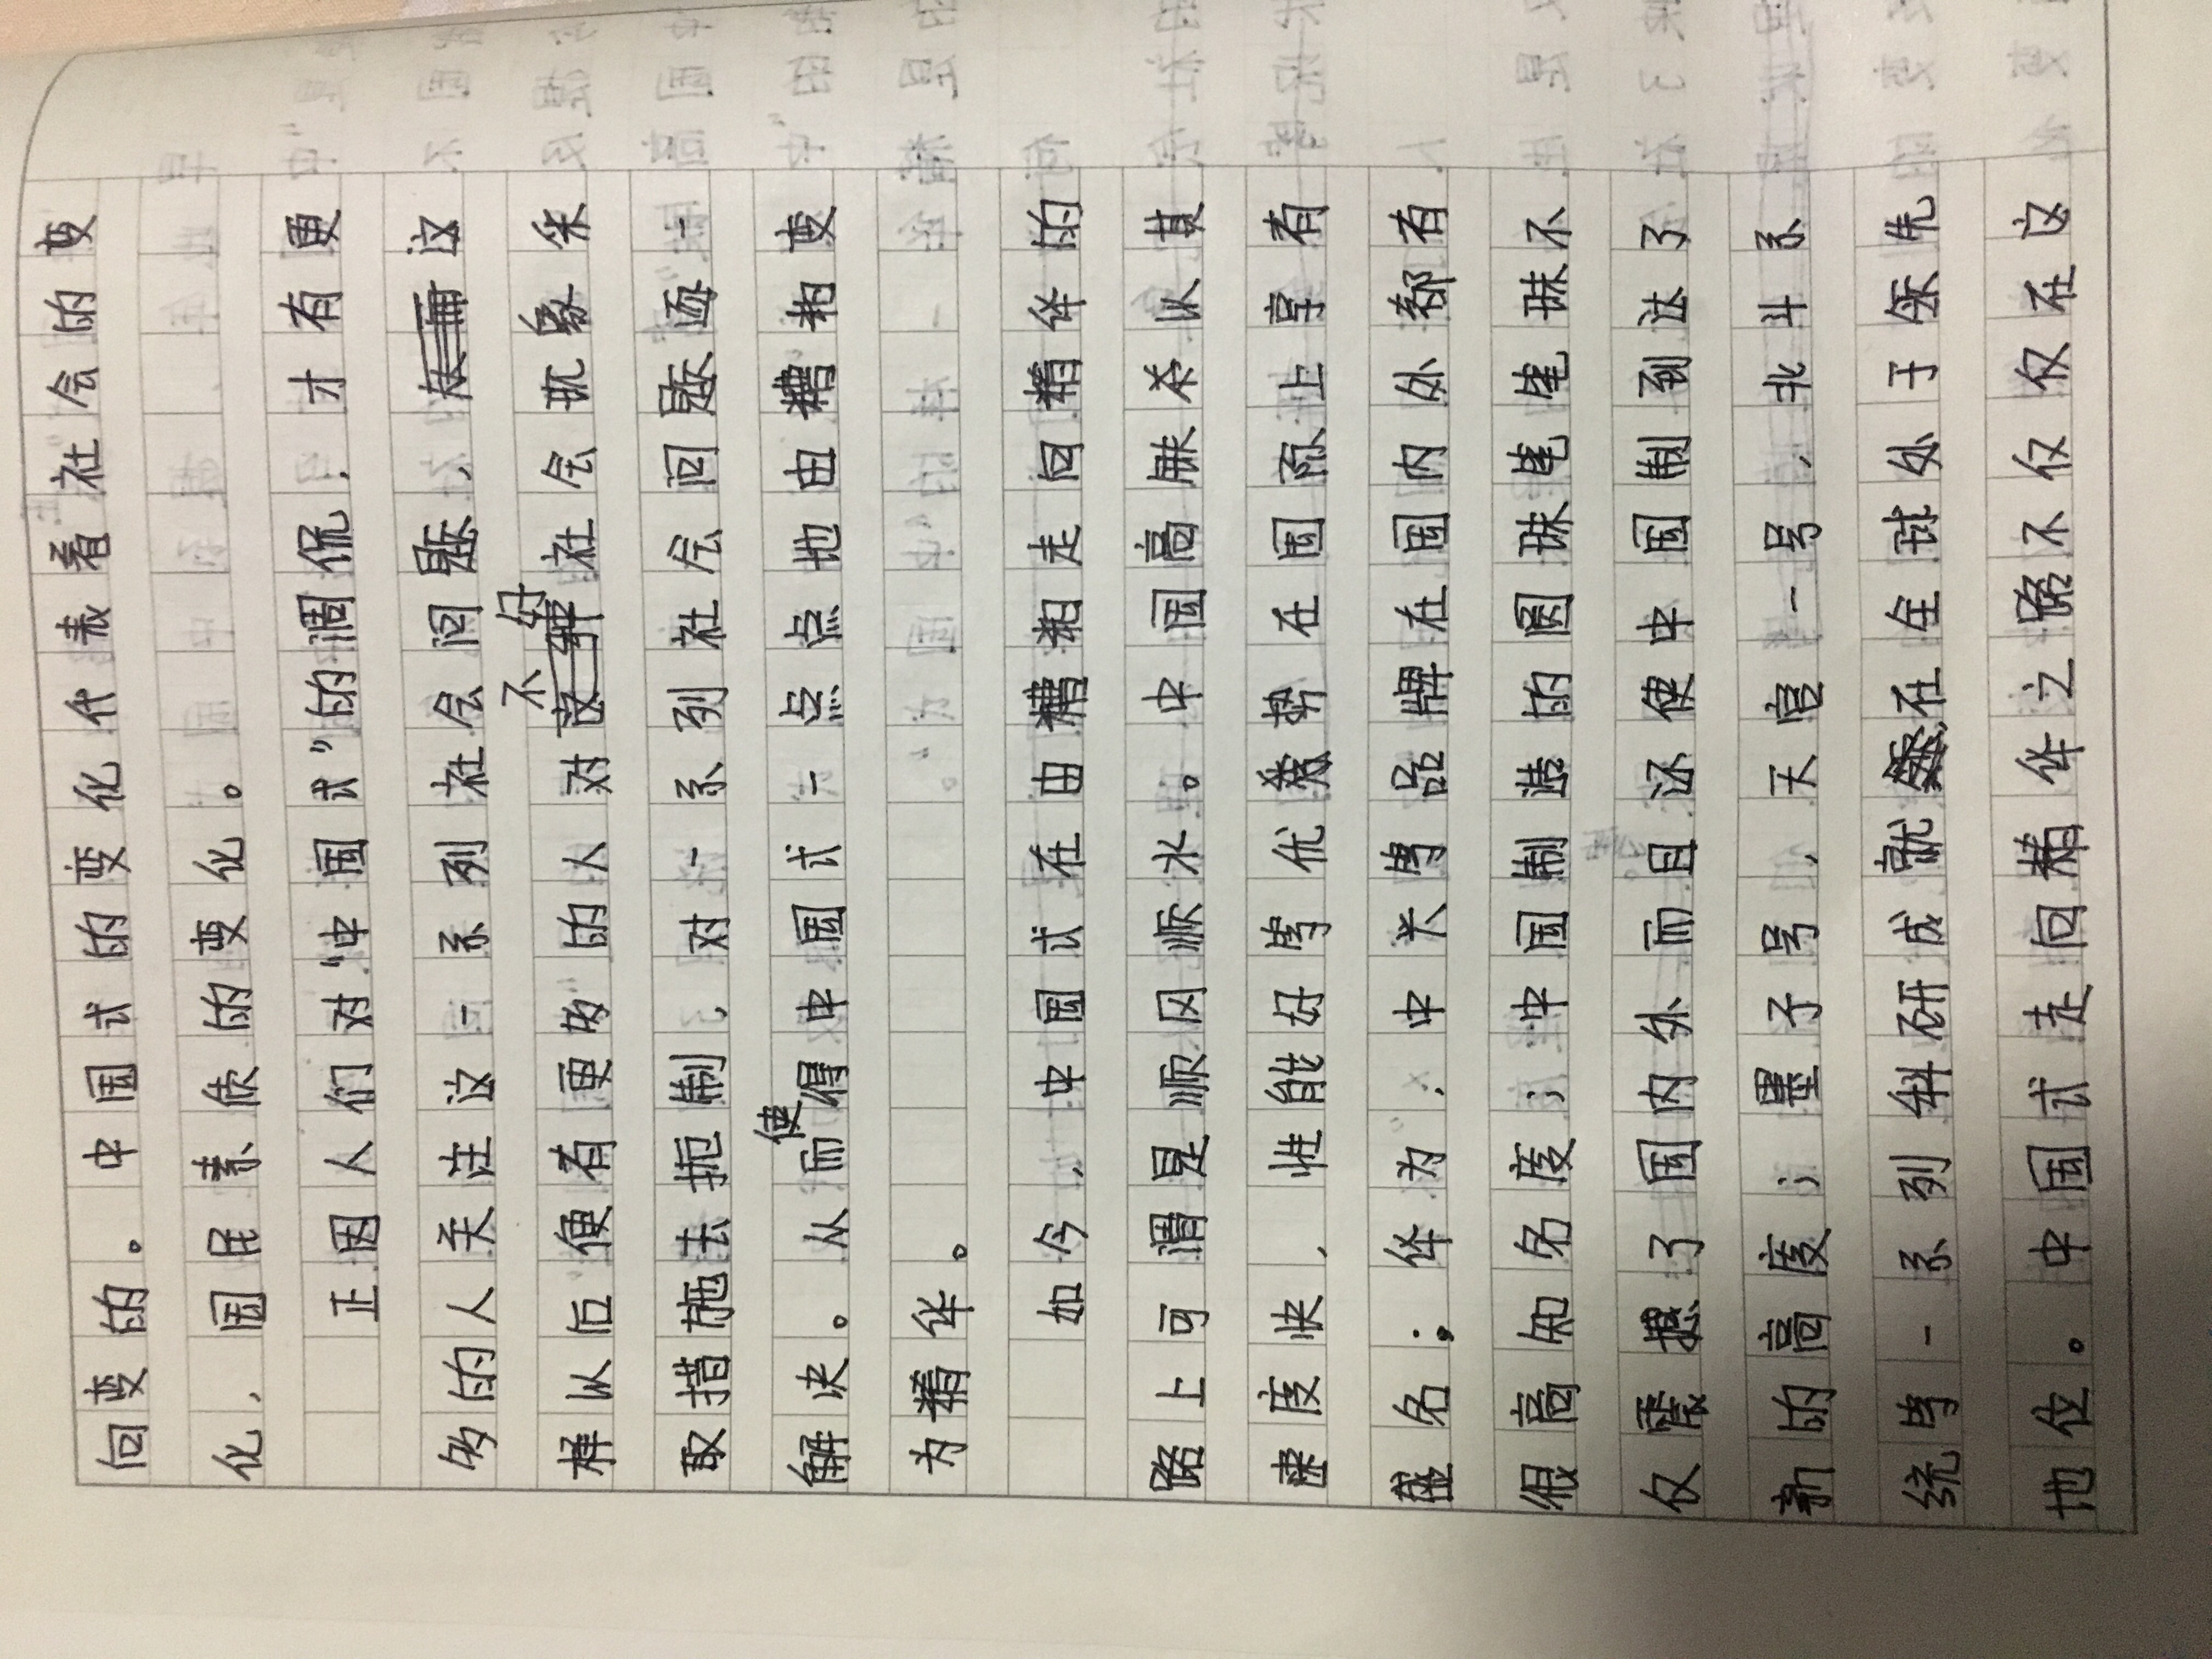 向变的。中国式的变化代表着社会的变
化，国民素质的变化。
正因人们对“中国式”的调侃，才有更
多的人关注这一系列社会问题，这
样以后便有更多的人对不好社会现象采
取措施去扼制，对一系列社会问题逐一
解决。从而使得中国式一点点地由糟粕变
为精华。
如今，中国式在由糟粕走向精华的
路上可谓是顺风顺水。中国高以其
速度快、性能好等优势在国际上享有
盛名；华为、中兴等品牌在国内外都有
很高知名度；中国制造的圆珠笔笔珠不
仅震撼了国内外而且还使中国制到达了
新的高度；墨子号、天宫一号、北斗系
统等一系列科研成就在全球处于先
地位。中国式走向精华之路不仅仅在这